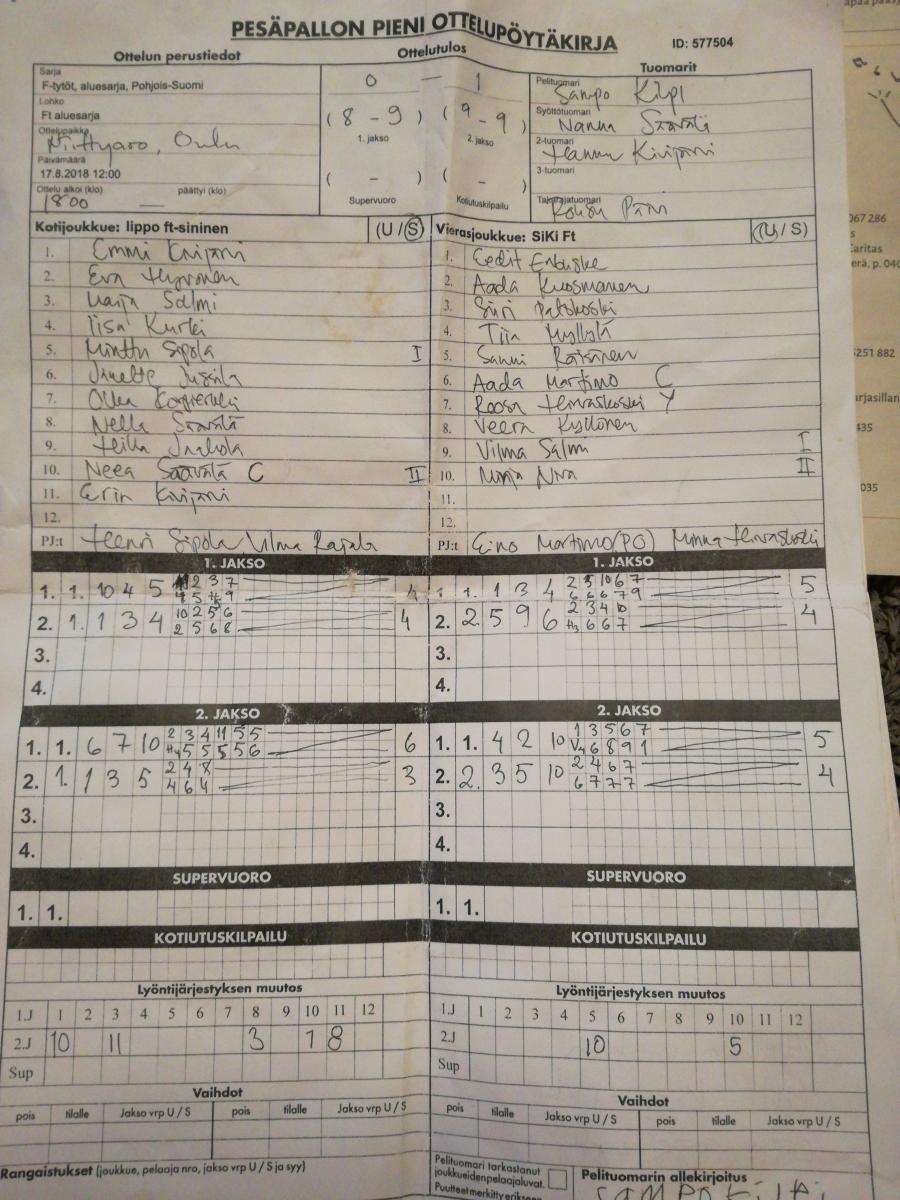 PESÄPALLON PIENI OTTELUPÖYTÄKIRJA
ID: 577504
Ottelun perustiedot
Ottelutulos
Tuomarit
Sarja
F-tytöt, aluesarja, Pohjois-Suomi
Lohko
Ft aluesarja
Ottelupaikka
Oulu
Päivämäärä
17.8.2018 12:00
Ottelu alkoi (klo) päättyi (klo)
1800
0 — 1
( 8 - 9 ) ( 9 - 9 )
1. jakso 2. jakso
( - ) ( - )
Supervuoro Kotiutuskilpailu
Pelituomari
Sampo
Syöttötuomari
Nanna Säävälä
2-tuomari
Hannu Kinjäni
3-tuomari
Takarajatuomari
Kotijoukkue: lippo ft-sininen (U / S)
1. Emmi
2. Eva Hyvönen
3. Salmi
4. Iisa Kurki
5. Minttu Sipola I
6. Jussila
7.
8. Nella Säävälä
9.
10. Neea Säävälä C II
11. Erin
12.
PJ:t Henri Sipola Vilma Rajala
Vierasjoukkue: SiKi Ft (U / S)
1. Cedit
2. Aada Kuosmanen
3. Siiri
4. Tiia Myllylä
5. Sanni Räisänen
6. Aada Martimo C
7. Roosa Hirvaskoski Y
8. Veera Kyllönen
9. Vilma Salmi I
10. Niva II
11.
12.
PJ:t Eino Martimo (PO) Minna Hirvaskoski
1. JAKSO
1. 1. 10 4 5 4
2. 1. 1 3 4 10 2 5 6 4
2 5 6 8
3.
4.
1. JAKSO
1. 1. 1 3 4 2 3 10 6 7 5
6 6 6 7 9
2. 2. 5 9 6 2 3 4 10 4
6 6 7
3.
4.
2. JAKSO
1. 1. 6 7 10 2 3 4 11 5 5 6
5 5 5 5 6
2. 1. 1 3 5 2 4 8 3
4 6 4
3.
4.
2. JAKSO
1. 1. 4 2 10 1 3 5 6 7 5
6 8 9 1
2. 2. 3 5 10 2 4 6 7 4
6 7 7 7
3.
4.
SUPERVUORO
1. 1.
SUPERVUORO
1. 1.
KOTIUTUSKILPAILU
KOTIUTUSKILPAILU
Lyöntijärjestyksen muutos
1.J 1 2 3 4 5 6 7 8 9 10 11 12
2.J 10 11 3 1 8
Sup
Lyöntijärjestyksen muutos
1.J 1 2 3 4 5 6 7 8 9 10 11 12
2.J 10 5
Sup
Vaihdot
pois tilalle Jakso vrp U / S pois tilalle Jakso vrp U / S
Vaihdot
pois tilalle Jakso vrp U / S pois tilalle Jakso vrp U / S
Rangaistukset (joukkue, pelaaja nro, jakso vrp U / S ja syy)
Pelituomari tarkastanut
joukkueiden pelaajaluvat.
Puutteet merkitty
Pelituomarin allekirjoitus
067 286
Caritas
p. 040
5251 882
arjasillan
435
035